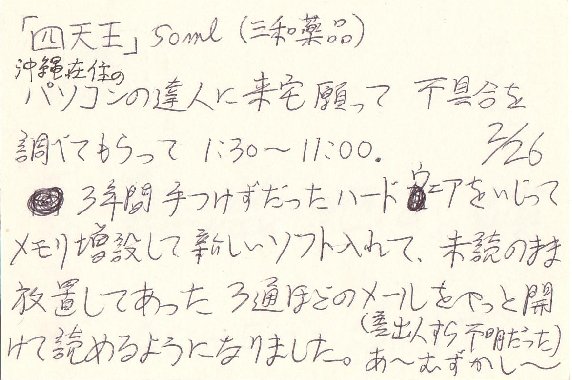 「四天王」50ml(三和薬品)
沖縄在住の
パソコンの達人に来宅願って 不具合を
調べてもらって 1:30〜11:00. 2/26
3年間手つけずだったハードウェアをいじって
メモリ増設して新しいソフト入れて、未読のまま
放置してあった 3通ほどのメールをやっと開
(差出人すら不明だった)
けて読めるようになりました。あ〜むずかし〜